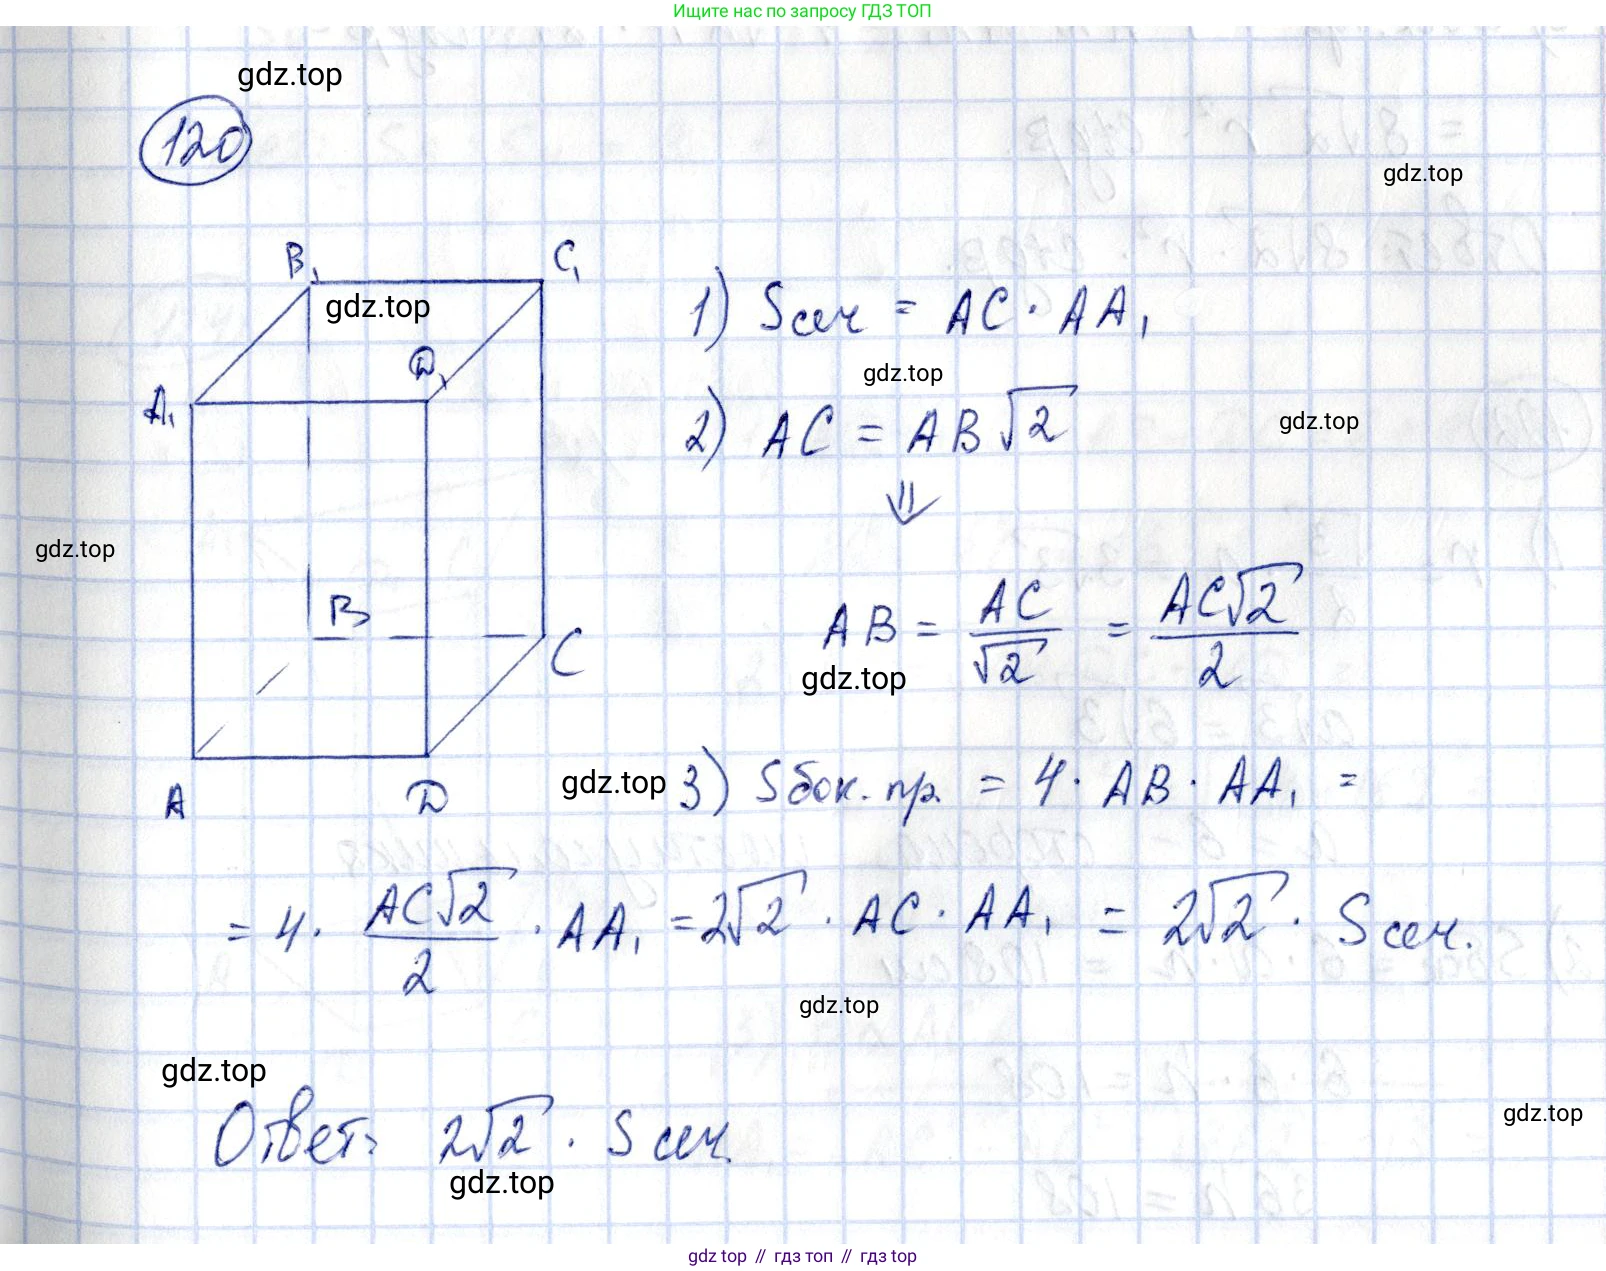 Ищите нас по запросу ГДЗ ТОП
gdz.top
120
gdz.top
B₁ C₁
gdz.top
1) Sсеч = AC · AA₁
D₁
gdz.top
A₁
2) AC = AB√2
gdz.top
⇓
gdz.top
B
AB = AC/√2 = AC√2/2
C
gdz.top
gdz.top
3) Sбок. пр. = 4 · AB · AA₁ =
A D
= 4 · AC√2/2 · AA₁ = 2√2 · AC · AA₁ = 2√2 · Sсеч.
gdz.top
gdz.top
gdz.top
Ответ: 2√2 · Sсеч.
gdz.top
gdz.top // гдз топ // гдз top